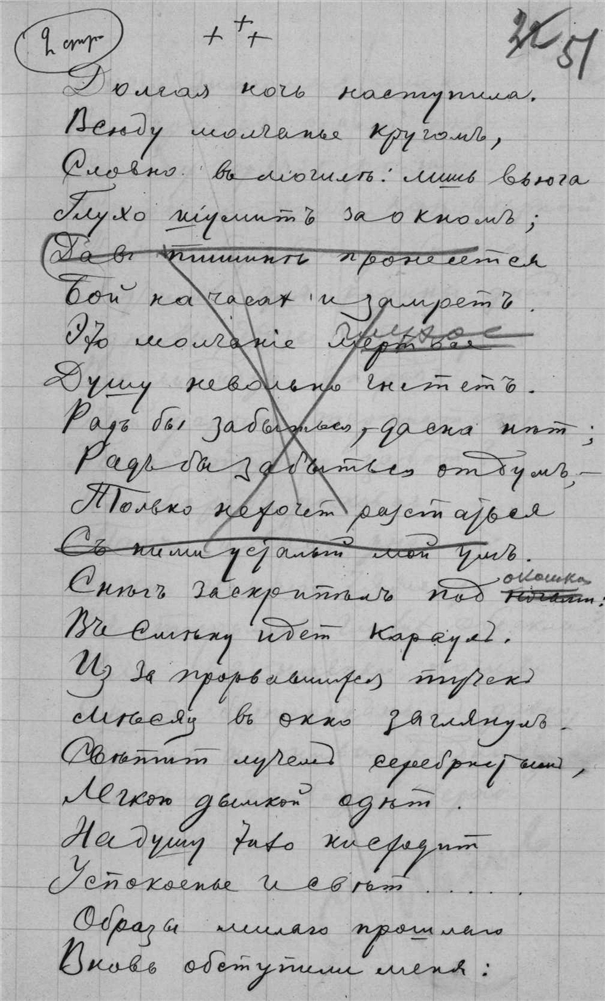 2 стр
+++
51
Долгая ночь наступила.
Всюду молчанье кругомъ,
Словно въ могилѣ: лишь вьюга
Глухо шумитъ за окномъ;
Да въ тишинѣ пронесется
Бой на часах и замретъ.
Это молчаніе мертвое
Душу невольно гнететъ.
Радъ бы забыться, – да сна нѣт;
Радъ бы забыться от думъ, –
Только не хочет разстаться
Съ ними усталый мой умъ.
Снѣгъ заскрипѣлъ под окошком:
Въ смѣну идет караулъ.
Из за прорвавшихся тучекъ
Мѣсяц въ окно заглянулъ.
Свѣтит лучемъ серебристымъ,
Легкою дымкой одѣт.
На душу тихо нисходит
Успокоенье и свѣт......
Образы милаго прошлаго
Вновь обступили меня: